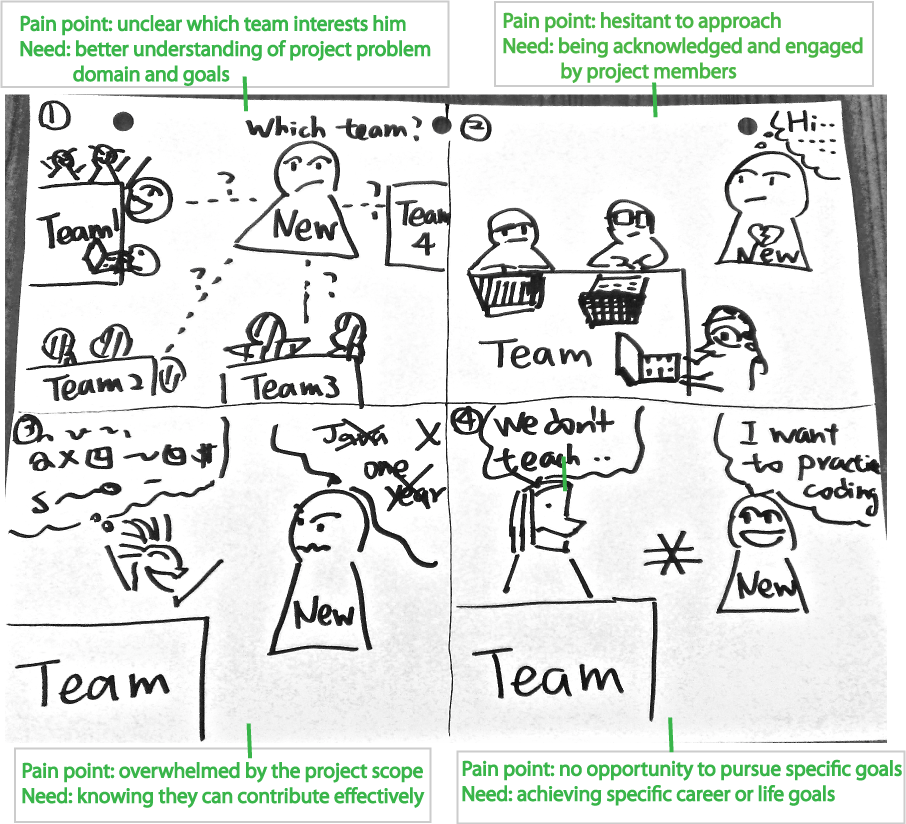 Pain point: unclear which team interests him
Need: better understanding of project problem
domain and goals
Pain point: hesitant to approach
Need: being acknowledged and engaged
by project members
1
Which team?
?
?
?
?
New
Team 1
Team 4
Team 2
Team 3
2
Hi...
New
Team
3
a x
one
year
New
Team
4
We don't
teach ..
I want
to practice
coding
New
Team
Pain point: overwhelmed by the project scope
Need: knowing they can contribute effectively
Pain point: no opportunity to pursue specific goals
Need: achieving specific career or life goals